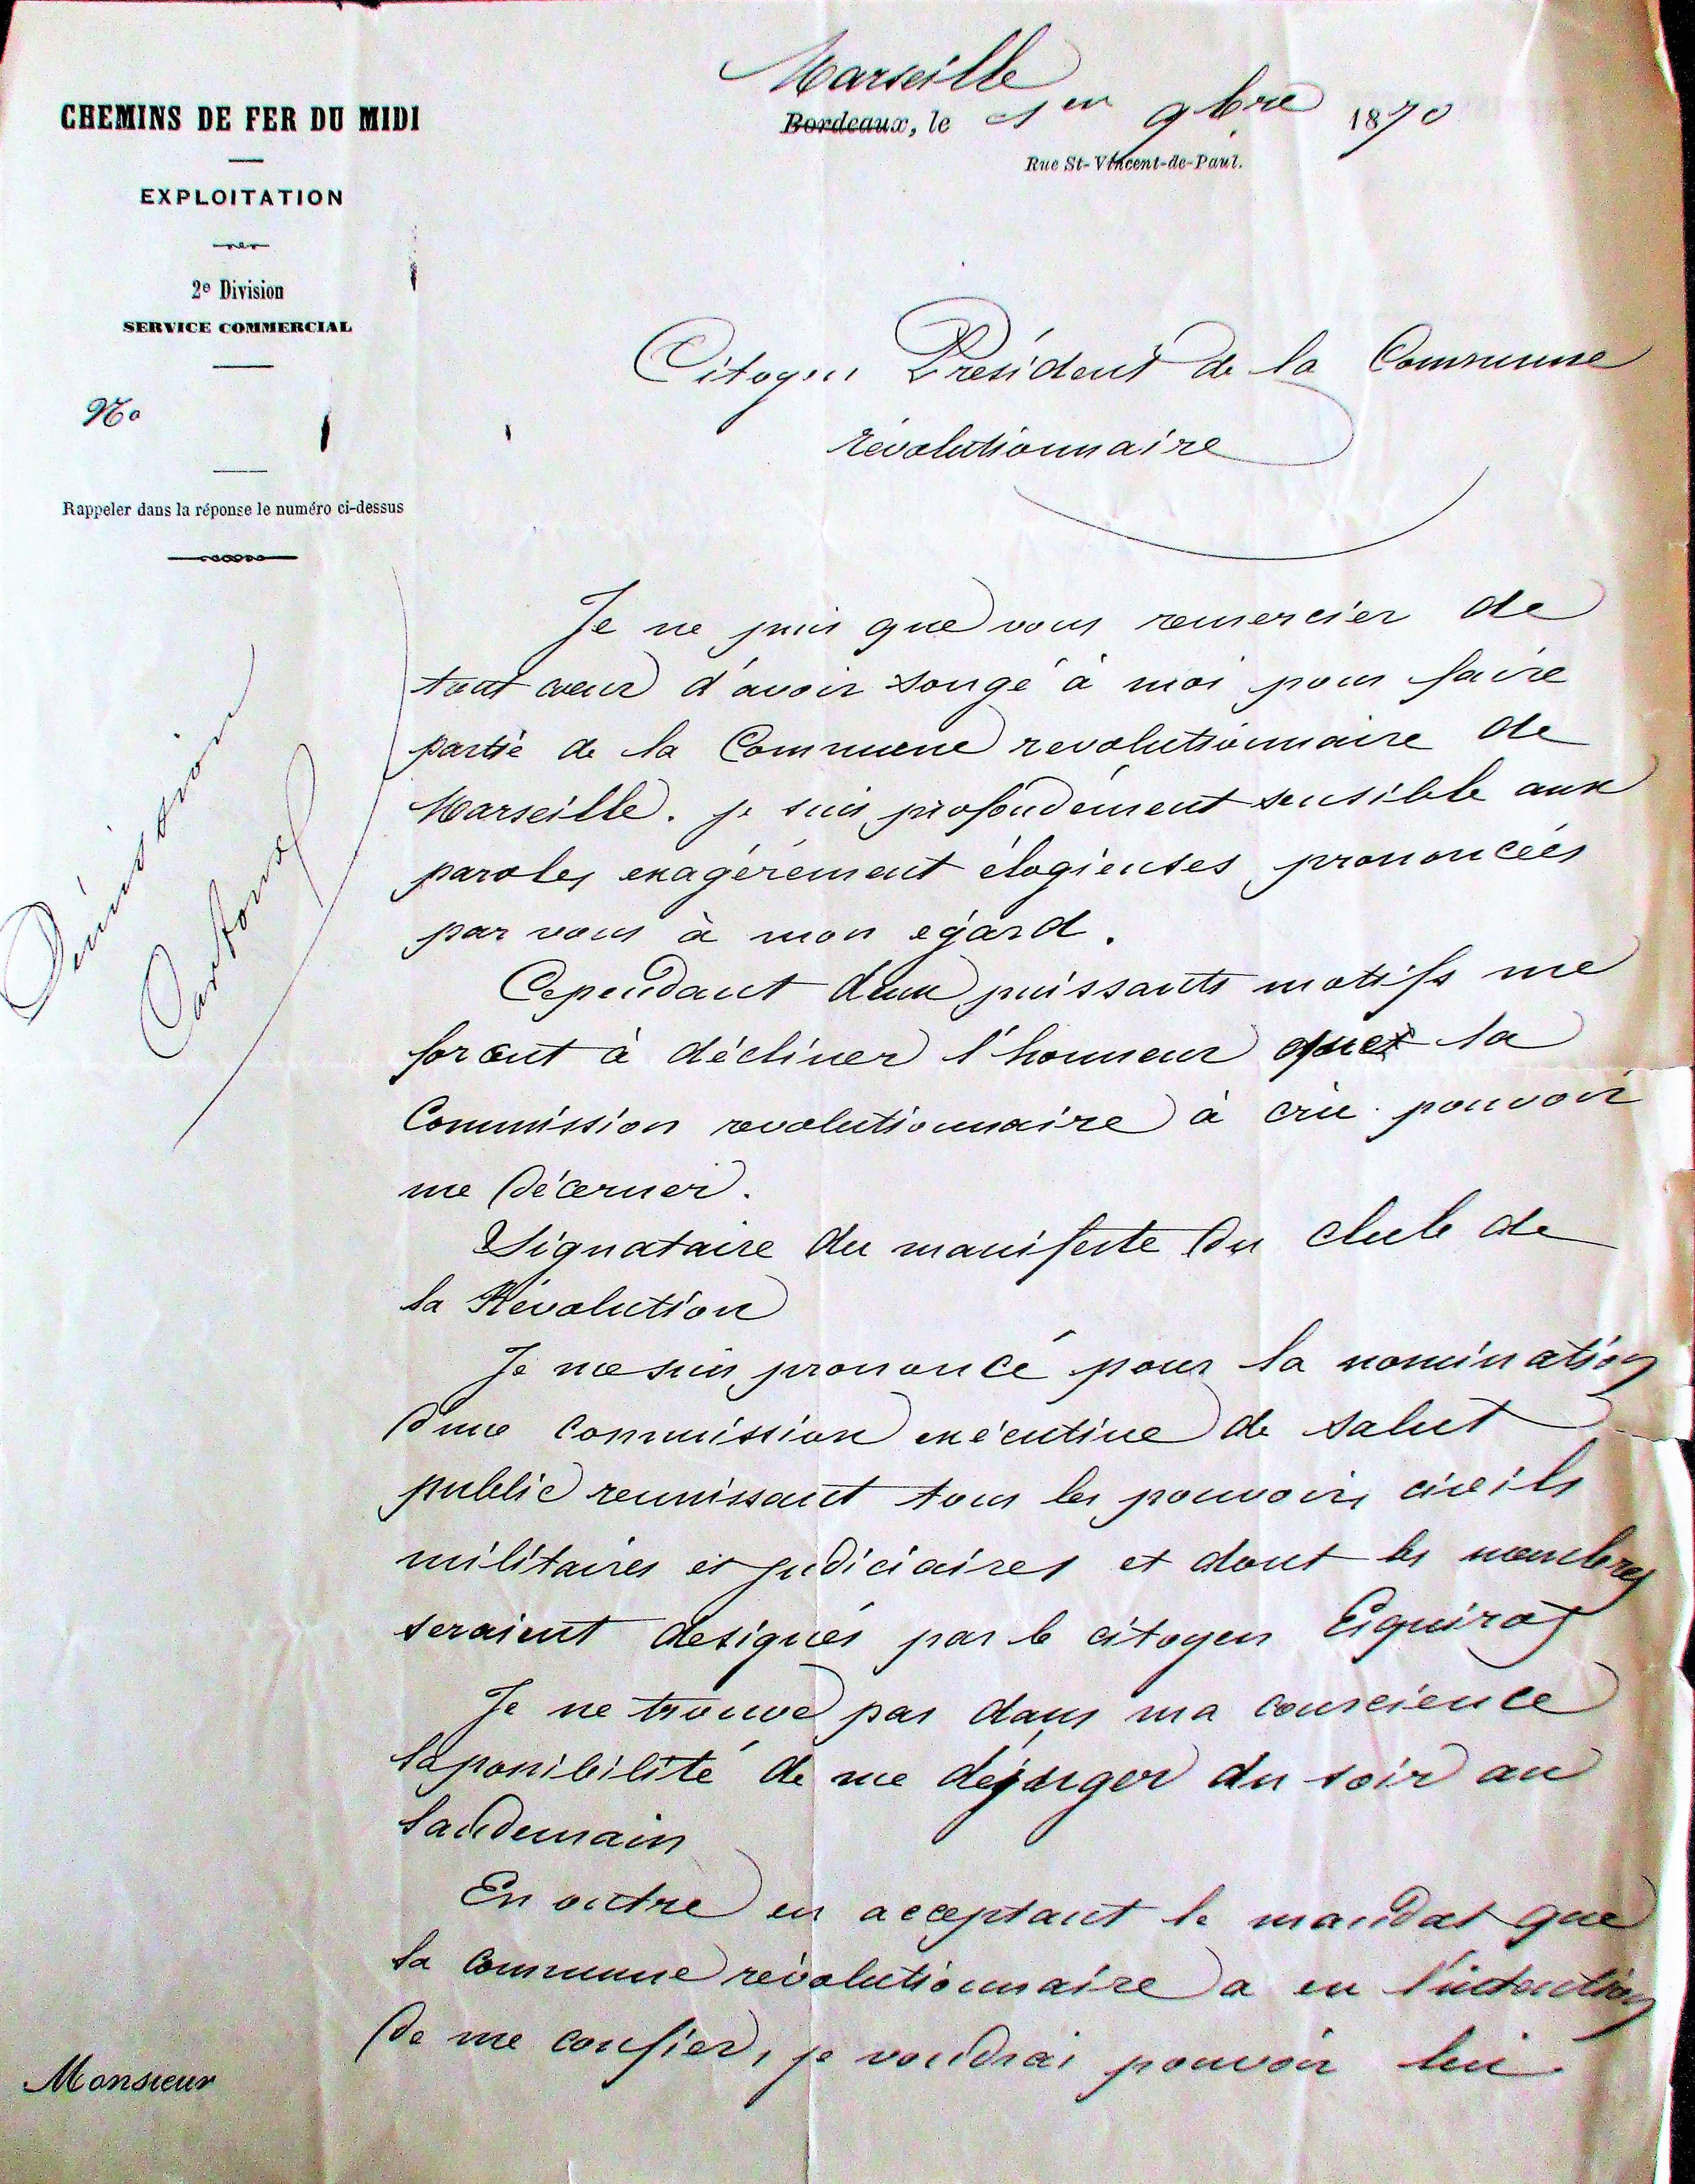 CHEMINS DE FER DU MIDI
EXPLOITATION
2e Division
SERVICE COMMERCIAL
No
Rappeler dans la réponse le numéro ci-dessus
Marseille
Bordeaux, le 1er 9bre 1870
Rue St-Vincent-de-Paul.
Citoyen Président de la Commune
révolutionnaire
Démission
Je ne puis que vous remercier de
tout cœur d'avoir songé à moi pour faire
partie de la Commune revolutionnaire de
Marseille. je suis profondément sensible aux
paroles exagérément élogieuses prononcées
par vous à mon égard.
Cependant deux puissants motifs me
forcent à décliner l'honneur que la
Commission revolutionnaire à crû pouvoir
me décerner.
Signataire du manifeste du club de
la Révolution
Je me suis prononcé pour la nomination
d'une commission exécutive de salut
public reunissant tous les pouvoirs civils
militaires et judiciaires et dont les membres
seraient designés par le citoyen Esquiros
Je ne trouve pas dans ma conscience
la possibilité de me déjuger du soir au
landemain
En outre en acceptant le mandat que
la commune révolutionnaire a eu l'intention
de me confier, je voudrai pouvoir lui
Monsieur